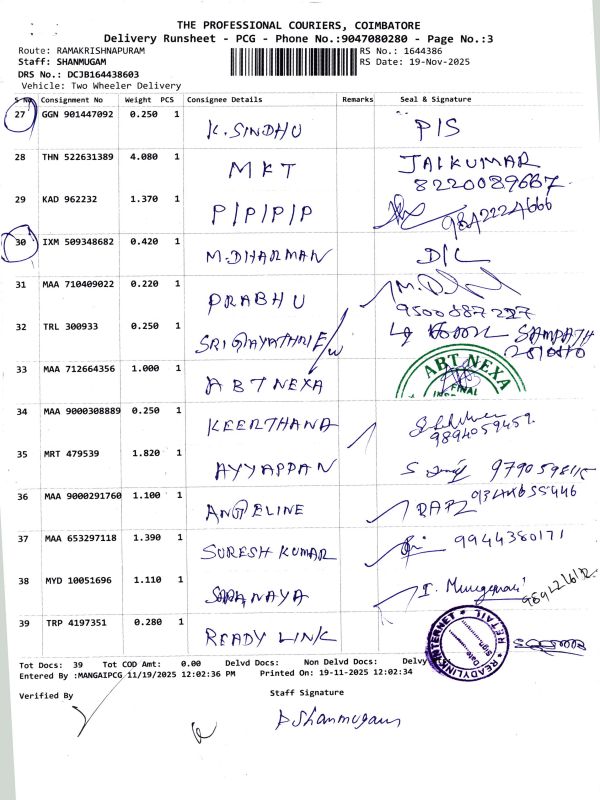 THE PROFESSIONAL COURIERS, COIMBATORE
Delivery Runsheet - PCG - Phone No.:9047080280 - Page No.:3
Route: RAMAKRISHNAPURAM RS No.: 1644386
Staff: SHANMUGAM RS Date: 19-Nov-2025
DRS No.: DCJB164438603
Vehicle: Two Wheeler Delivery
S No Consignment No Weight PCS Consignee Details Remarks Seal & Signature
27 GGN 901447092 0.250 1 K.SINDHU P/S
28 THN 522631389 4.080 1 MKT JAIKUMAR
8220089667
29 KAD 962232 1.370 1 P/P/P/P 9842224666
30 IXM 509348682 0.420 1 M.DHARMAN D/L
31 MAA 710409022 0.220 1 PRABHU M.D
9500087227
32 TRL 300933 0.250 1 SRI GAYATHRI E/W SAMPATH
33 MAA 712664356 1.000 1 ABT NEXA ABT NEXA
FINAL
34 MAA 9000308889 0.250 1 KEERTHANA
9894059459
35 MRT 479539 1.820 1 AYYAPPAN S
36 MAA 9000291760 1.100 1 ANGELINE
37 MAA 653297118 1.390 1 SURESH KUMAR 9944380171
38 MYD 10051696 1.110 1 SARANAYA I. Murugesan
39 TRP 4197351 0.280 1 READY LINK READYLINK INTERNET RETAIL
Sign
Date
Tot Docs: 39 Tot COD Amt: 0.00 Delvd Docs: Non Delvd Docs: Delvy
Entered By :MANGAIPCG 11/19/2025 12:02:36 PM Printed On: 19-11-2025 12:02:34
Verified By Staff Signature
P Shanmugam